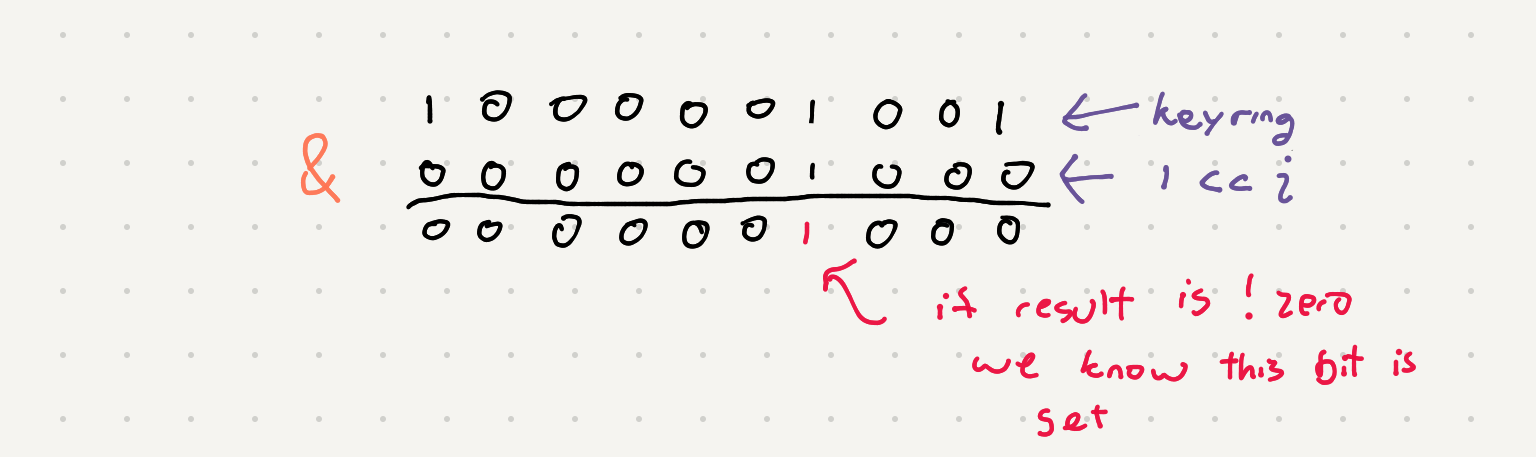 1 0 0 0 0 0 1 0 0 1 ← keyring
& 0 0 0 0 0 0 1 0 0 0 ← 1 << i
0 0 0 0 0 0 1 0 0 0
if result is ! zero
we know this bit is
set